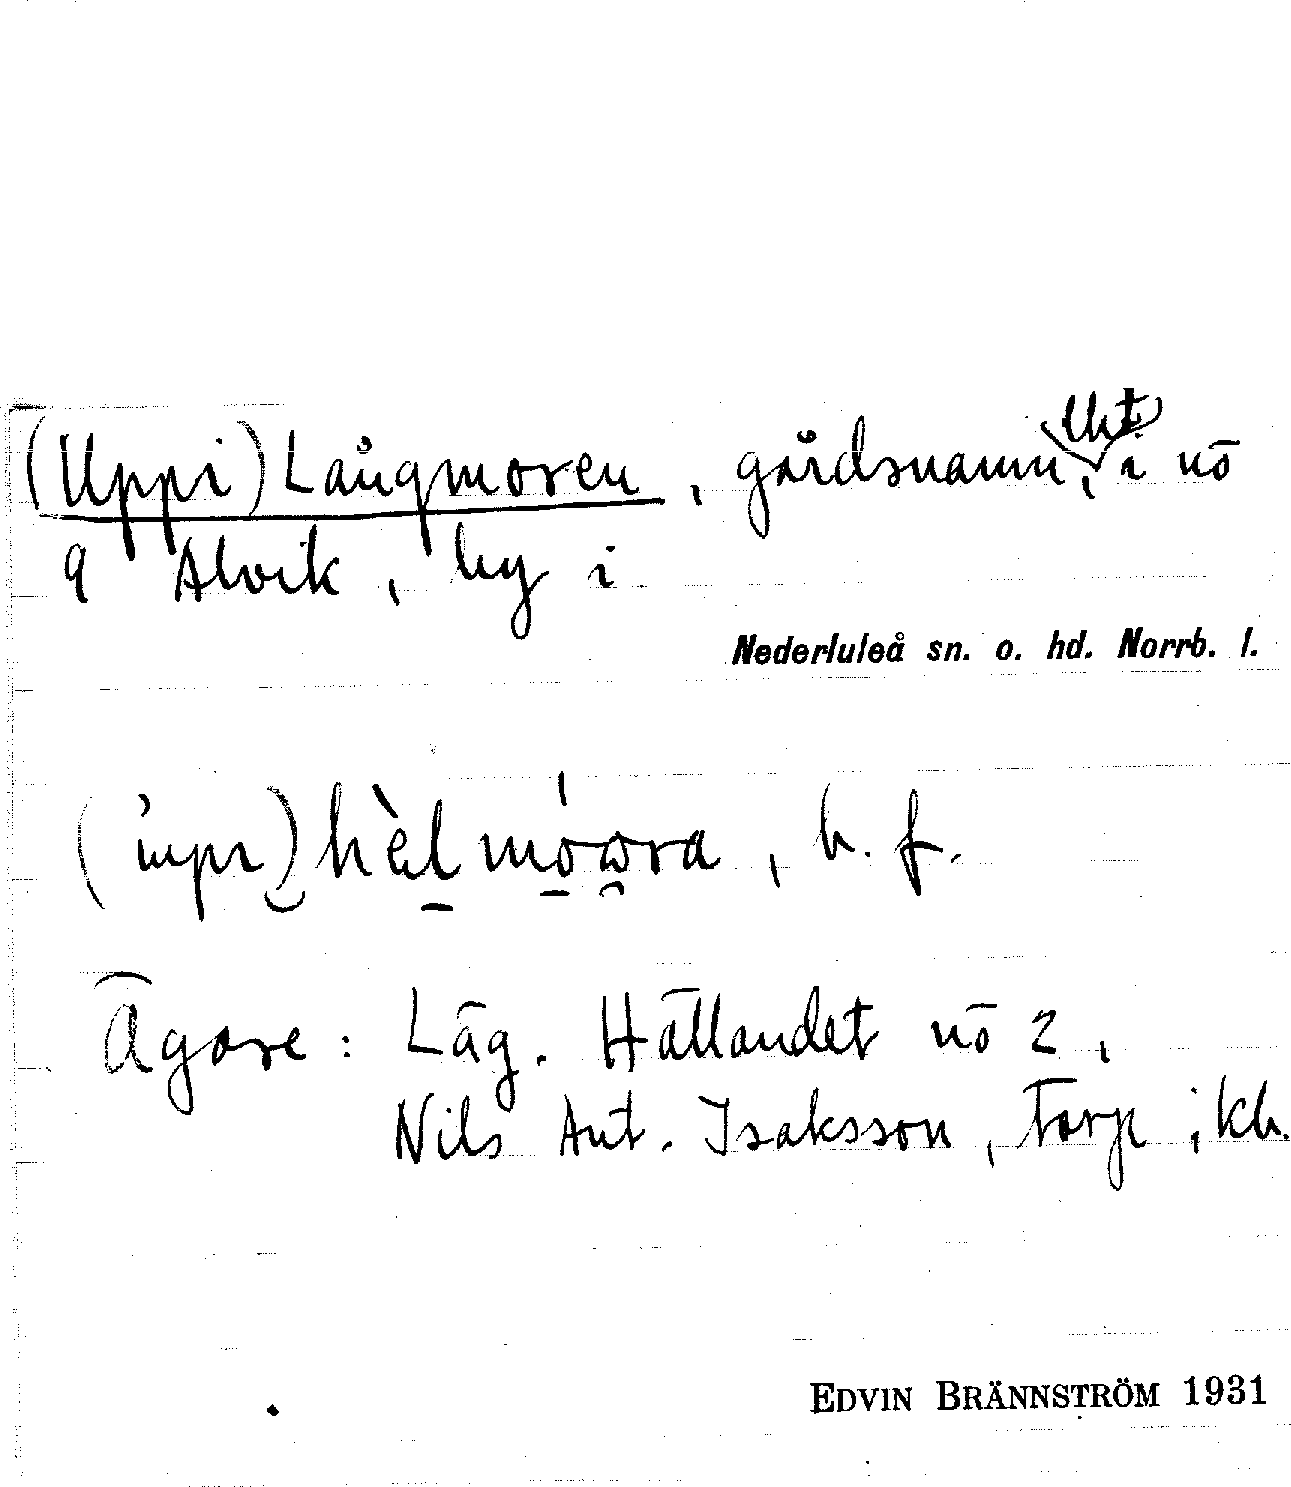 (Uppi) Långmoren, gårdsnamn, i nō
9 Alvik, by i
Nederluleå sn. o. hd. Norrb. l.
, b. f.
Ägare: Läg. Hällandet nō 2,
Nils Ant. Isaksson, Torp, kb.
EDVIN BRÄNNSTRÖM 1931